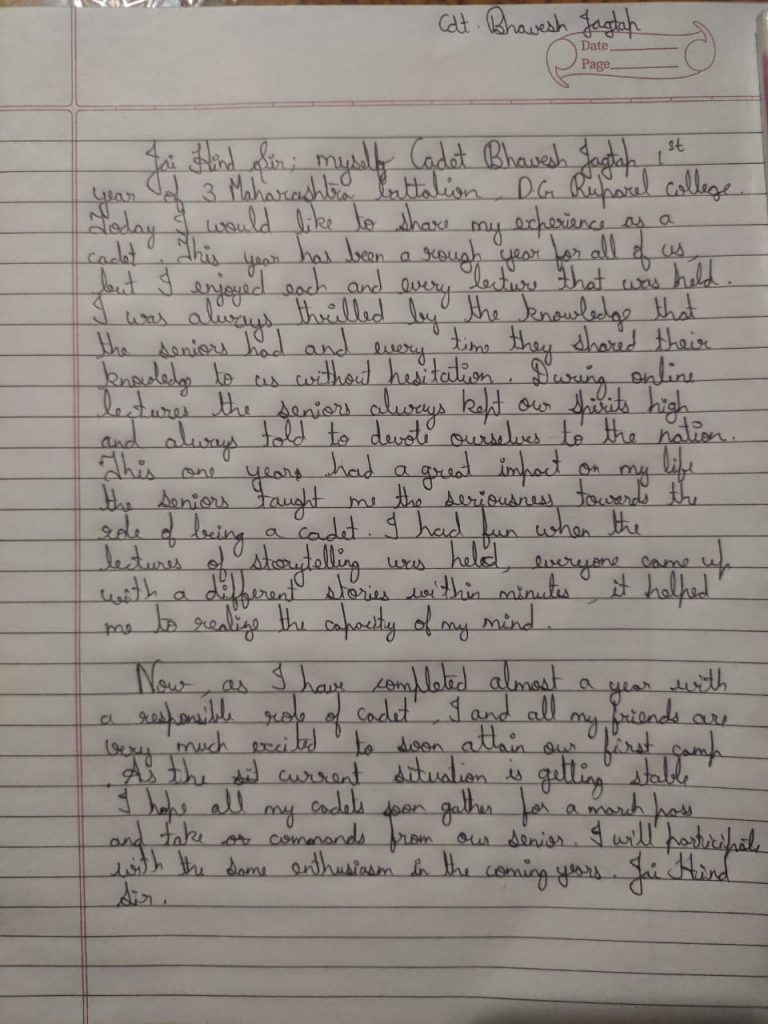 Cdt. Bhavesh Jagtap
Date
Page
Jai Hind Sir; myself Cadet Bhavesh Jagtap 1st
year of 3 Maharashtra battalion, D.G. Ruparel college.
Today I would like to share my experience as a
cadet. This year has been a rough year for all of us,
but I enjoyed each and every lecture that was held.
I was always thrilled by the knowledge that
the seniors had and every time they shared their
knowledge to us without hesitation. During online
lectures the seniors always kept our spirits high
and always told to devote ourselves to the nation.
This one years had a great impact on my life
the seniors taught me the seriousness towards the
role of being a cadet. I had fun when the
lectures of storytelling was held, everyone came up
with a different stories within minutes, it helped
me to realize the capacity of my mind.
Now, as I have completed almost a year with
a responsible role of cadet, I and all my friends are
very much excited to soon attain our first camp
. As the current situation is getting stable
I hope all my cadets soon gather for a march pass
and take commands from our senior. I will participate
with the same enthusiasm in the coming years. Jai Hind
Sir.